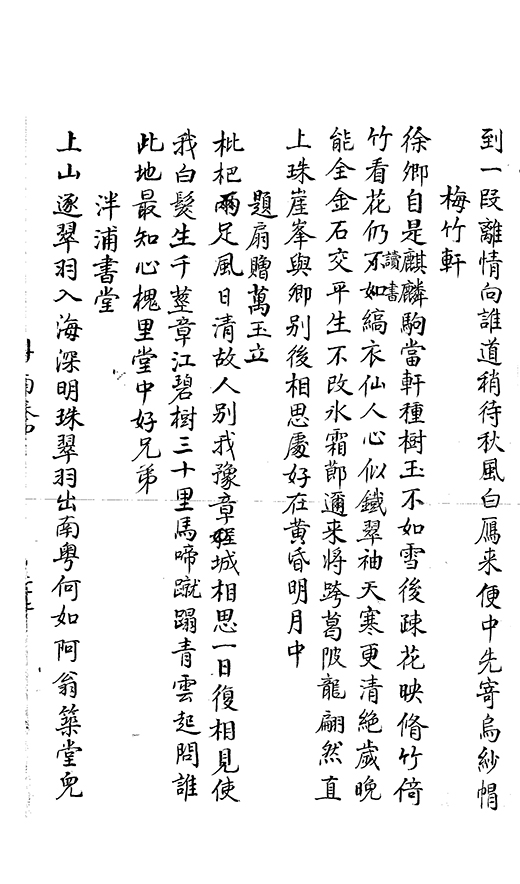 到一段離情向誰道稍待秋風白鴈来便中先寄烏紗帽
梅竹軒
徐卿自是麒麟駒當軒種樹玉不如雪後疎花映脩竹倚
竹看花仍不如讀書縞衣仙人心似鐵翠袖天寒更清絶歲晚
能全金石交平生不改氷霜節邇来將跨葛陂龍翩然直
上珠崖峯與卿别後相思處好在黄昏明月中
題扇贈萬玉立
枇杷雨足風日清故人别我豫章城相思一日復相見使
我白髮生千莖章江碧樹三十里馬啼蹴蹋青雲起問誰
此地最知心槐里堂中好兄弟
泮浦書堂
上山逐翠羽入海深明珠翠羽出南粤何如阿翁築堂皃